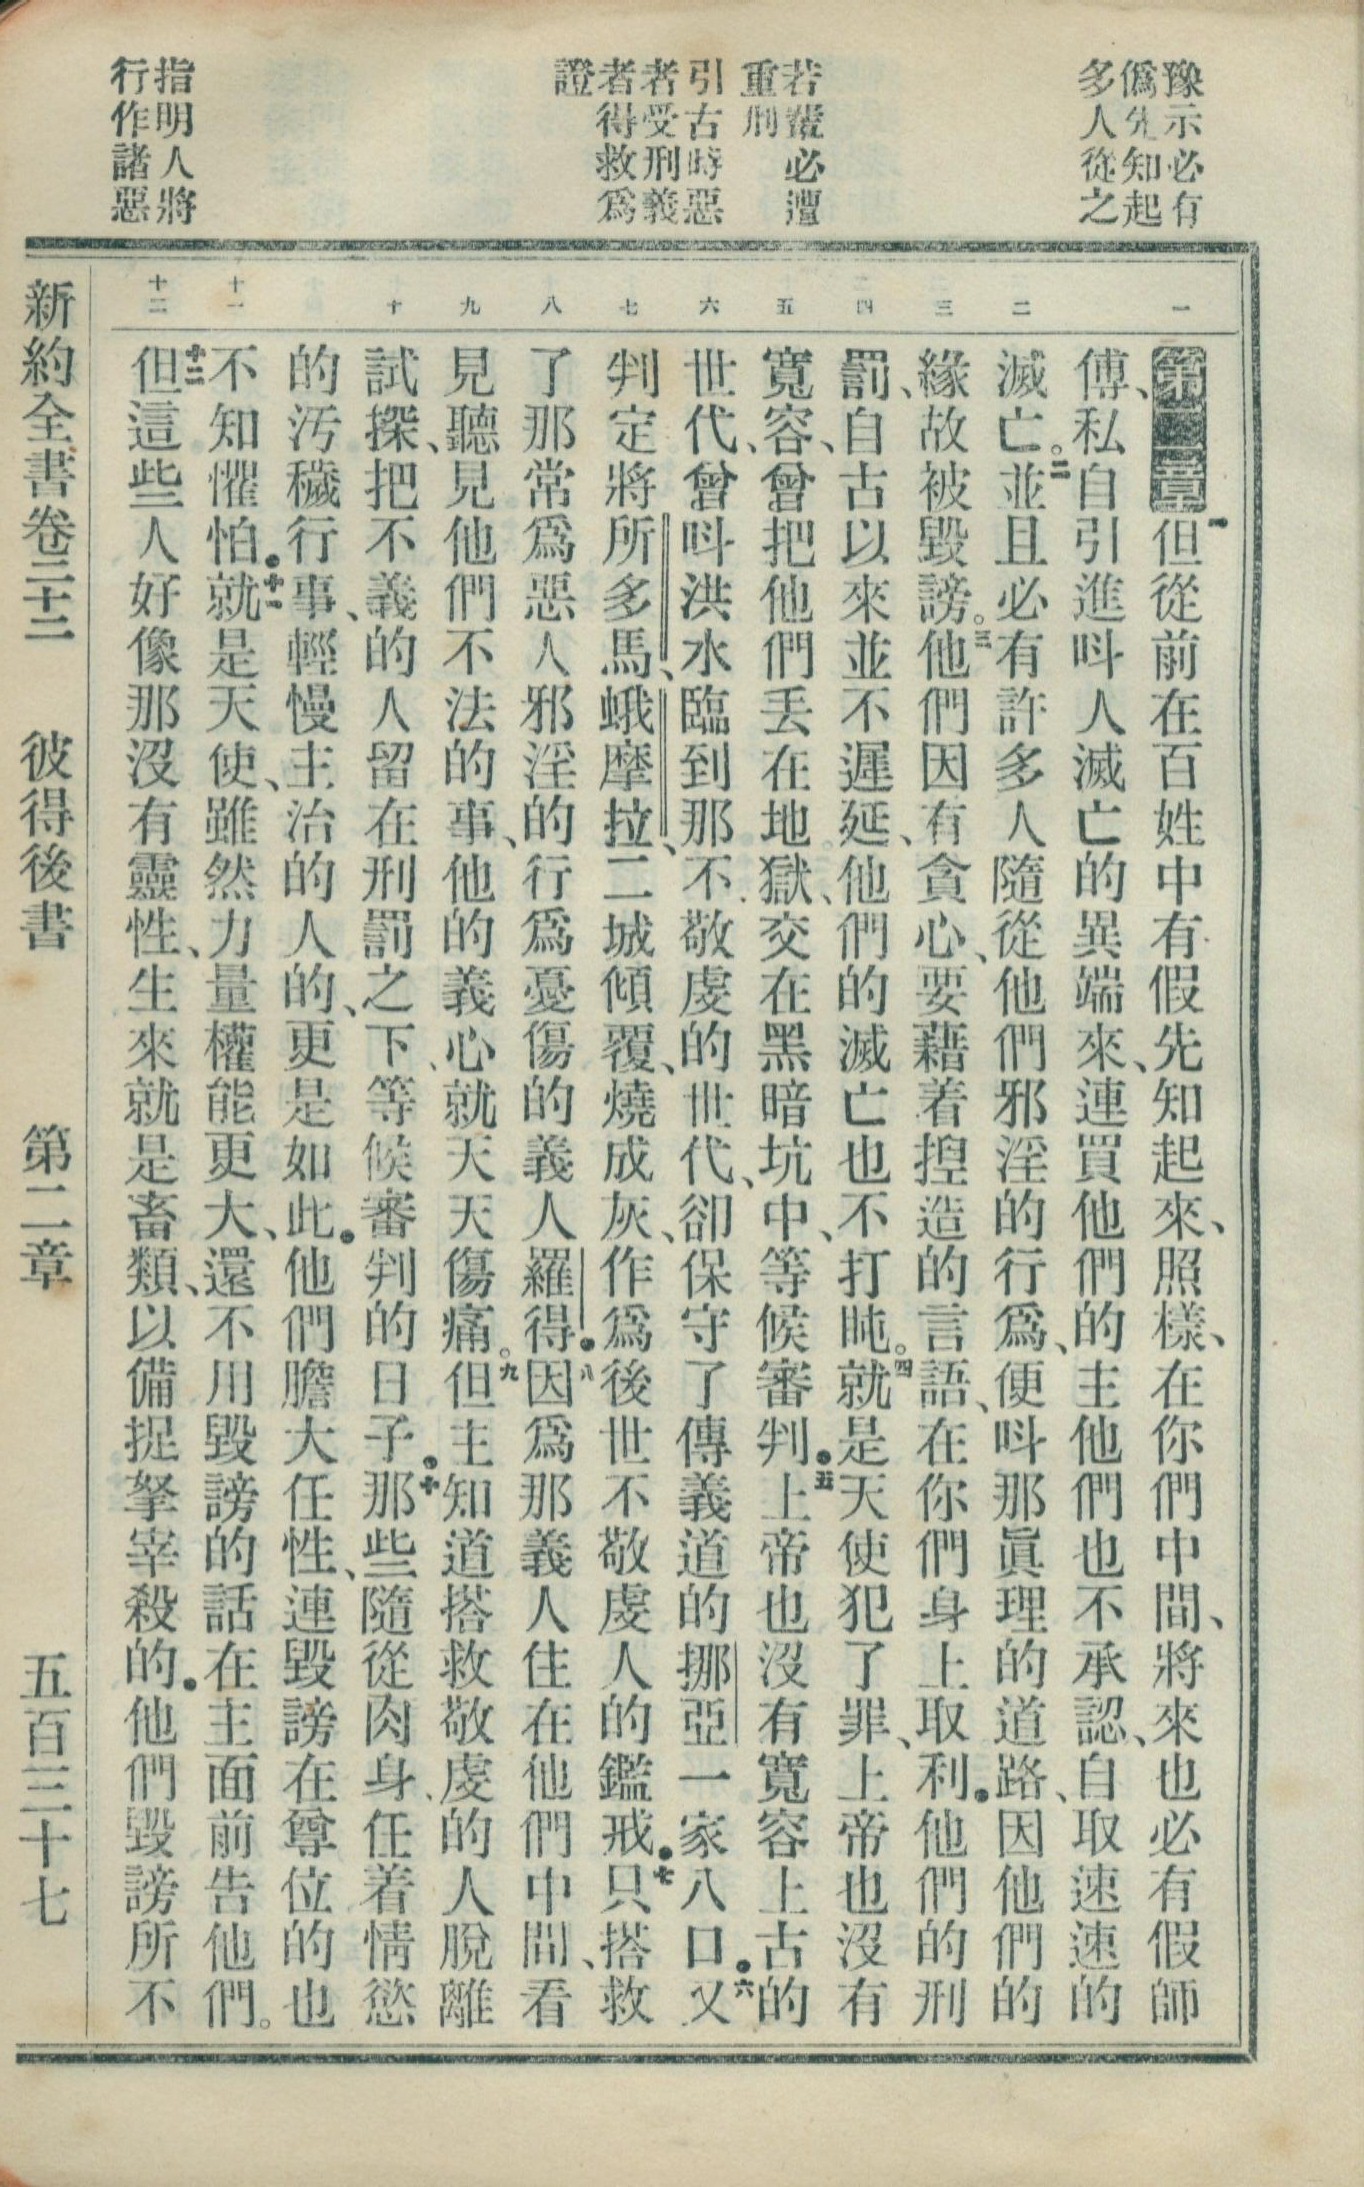 豫示必有
僞先知起
多人從之
若輩必遭
重刑
引古時惡
者受刑義
者得救爲
證
指明人將
行作諸惡
一
二
三
四
五
六
七
八
九
十
十一
十二
第二章一但從前在百姓中有假先知起來、照樣、在你們中間、將來也必有假師
傅、私自引進呌人滅亡的異端來、連買他們的主他們也不承認、自取速速的
滅亡。二並且必有許多人隨從他們邪淫的行爲、便呌那眞理的道路、因他們的
緣故被毀謗。三他們因有貪心、要藉着揑造的言語、在你們身上取利．他們的刑
罰、自古以來並不遲延、他們的滅亡也不打盹。四就是天使犯了罪、上帝也沒有
寬容、曾把他們丟在地獄、交在黑暗坑中、等候審判．五上帝也沒有寬容上古的
世代、曾呌洪水臨到那不敬虔的世代、卻保守了傳義道的挪亞一家八口．六又
判定將所多馬、蛾摩拉、二城傾覆、燒成灰、作爲後世不敬虔人的鑑戒．七只搭救
了那常爲惡人邪淫的行爲憂傷的義人羅得．八因爲那義人住在他們中間、看
見聽見他們不法的事、他的義心就天天傷痛。九但主知道搭救敬虔的人脫離
試探、把不義的人留在刑罰之下、等候審判的日子．十那些隨從肉身、任着情慾
的汚穢行事、輕慢主治的人的、更是如此．他們膽大任性、連毀謗在尊位的也
不知懼怕．十一就是天使、雖然力量權能更大、還不用毀謗的話在主面前告他們。
十二但這些人好像那沒有靈性、生來就是畜類、以備捉拏宰殺的．他們毀謗所不
新約全書卷二十二 彼得後書 第二章 五百三十七